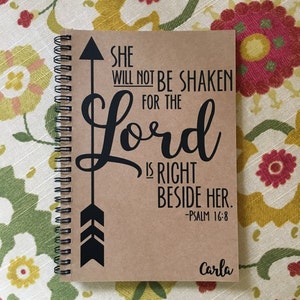 SHE
WILL NOT BE SHAKEN
FOR THE
Lord
IS RIGHT
BESIDE HER.
-PSALM 16:8
Carla